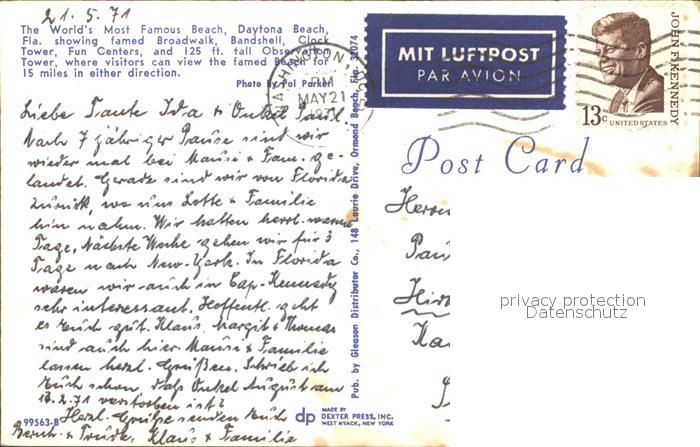 21.5.71
The World's Most Famous Beach, Daytona Beach,
Fla. showing famed Broadwalk, Bandshell, Clock
Tower, Fun Centers, and 125 ft. tall Observation
Tower, where visitors can view the famed Beach for
15 miles in either direction.
Photo by Pal Parker
Liebe Tante Ida & Onkel Paul.
Nach 7 jähriger Pause sind wir
wieder mal bei Mausi & Fam. ge-
landet. Gerade sind wir von Florida
zurück, wo uns Lotte & Familie
hin nahm. Wir hatten herrl. warme
Tage. Nächste Woche gehen wir für 3
Tage nach New-York. In Florida
waren wir auch in Cap-Kennedy
sehr interessant. Hoffentl. geht
es Euch gut. Klaus, Margit & Thomas
sind auch hier Mausi & Familie
lassen herzl. Grüßen. Schrieb ich
Euch schon, daß Onkel August am
.2.71 verstorben ist?
Herzl. Grüße senden Euch
& Trude, Klaus & Familie
99563-B
Pub. by Gleason Distributor Co., 148 Laurie Drive, Ormond Beach, Fla. 32074
dp
MADE BY
DEXTER PRESS, INC.
WEST NYACK, NEW YORK
WASHINGTON, D.C.
PM
MAY 21
MIT LUFTPOST
PAR AVION
JOHN F. KENNEDY
13c UNITED STATES
Post Card
Herrn
Pau
Hirs
Ka
privacy protection
Datenschutz